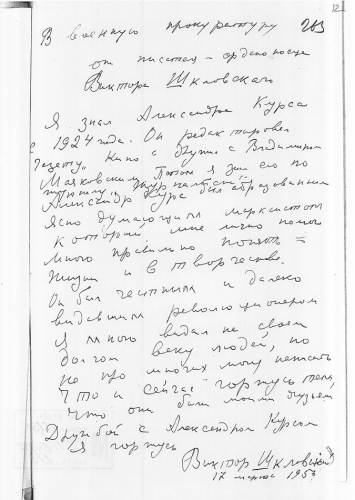 12
В военную прокуратуру 203
от писателя – орденоносца
Виктора Шкловского
Я знал Александра Курса
с 1924 года. Он редактировал
газету „Кино" с
Маяковским. Потом я знал его по
журналу „Журналист".
Александр Курс был образованным
Ясно думающим марксистом
который мне лично помог
много правильно понять в
жизни и в творчестве.
Он был честным и далеко
видавшим революционером
Я много видал на своем
долгом веку людей, но
не про многих могу написать
что и сейчас горжусь тем,
что они были моими друзьями
Дружбой с Александром Курсом
я горжусь
Виктор Шкловский
17 марта 195